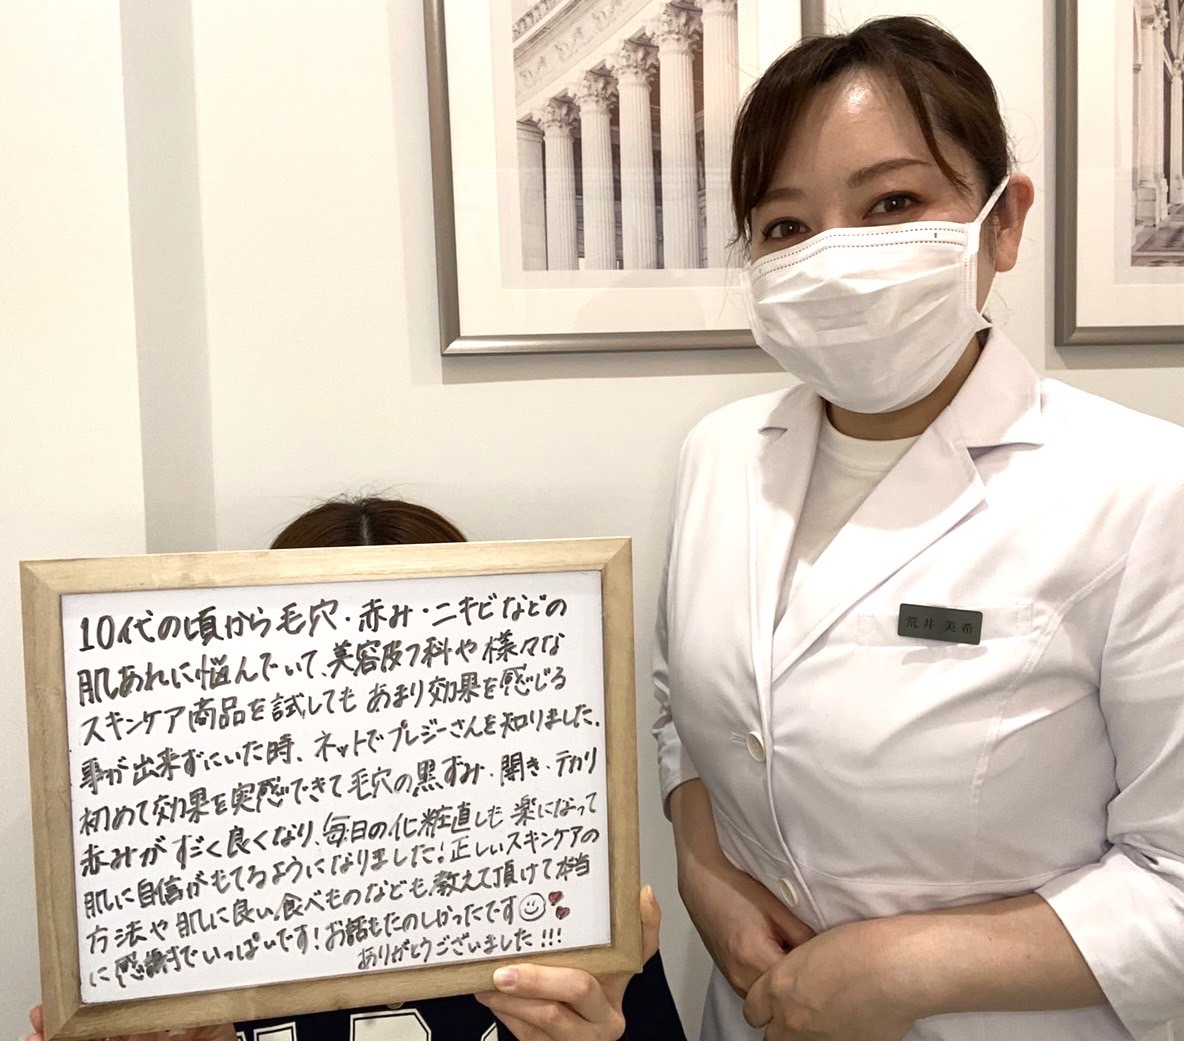 10代の頃から毛穴・赤み・ニキビなどの
肌あれに悩んでいて、美容皮フ科や様々な
スキンケア商品を試してもあまり効果を感じる
事が出来ずにいた時、ネットでプレジーさんを知りました。
初めて効果を実感できて毛穴の黒ずみ・開き・テカリ
赤みがすごく良くなり、毎日の化粧直しも楽になって
肌に自信がもてるようになりました!正しいスキンケアの
方法や肌に良い食べものなども教えて頂けて本当
に感謝でいっぱいです!お話もたのしかったです
ありがとうございました!!!
荒井 美希